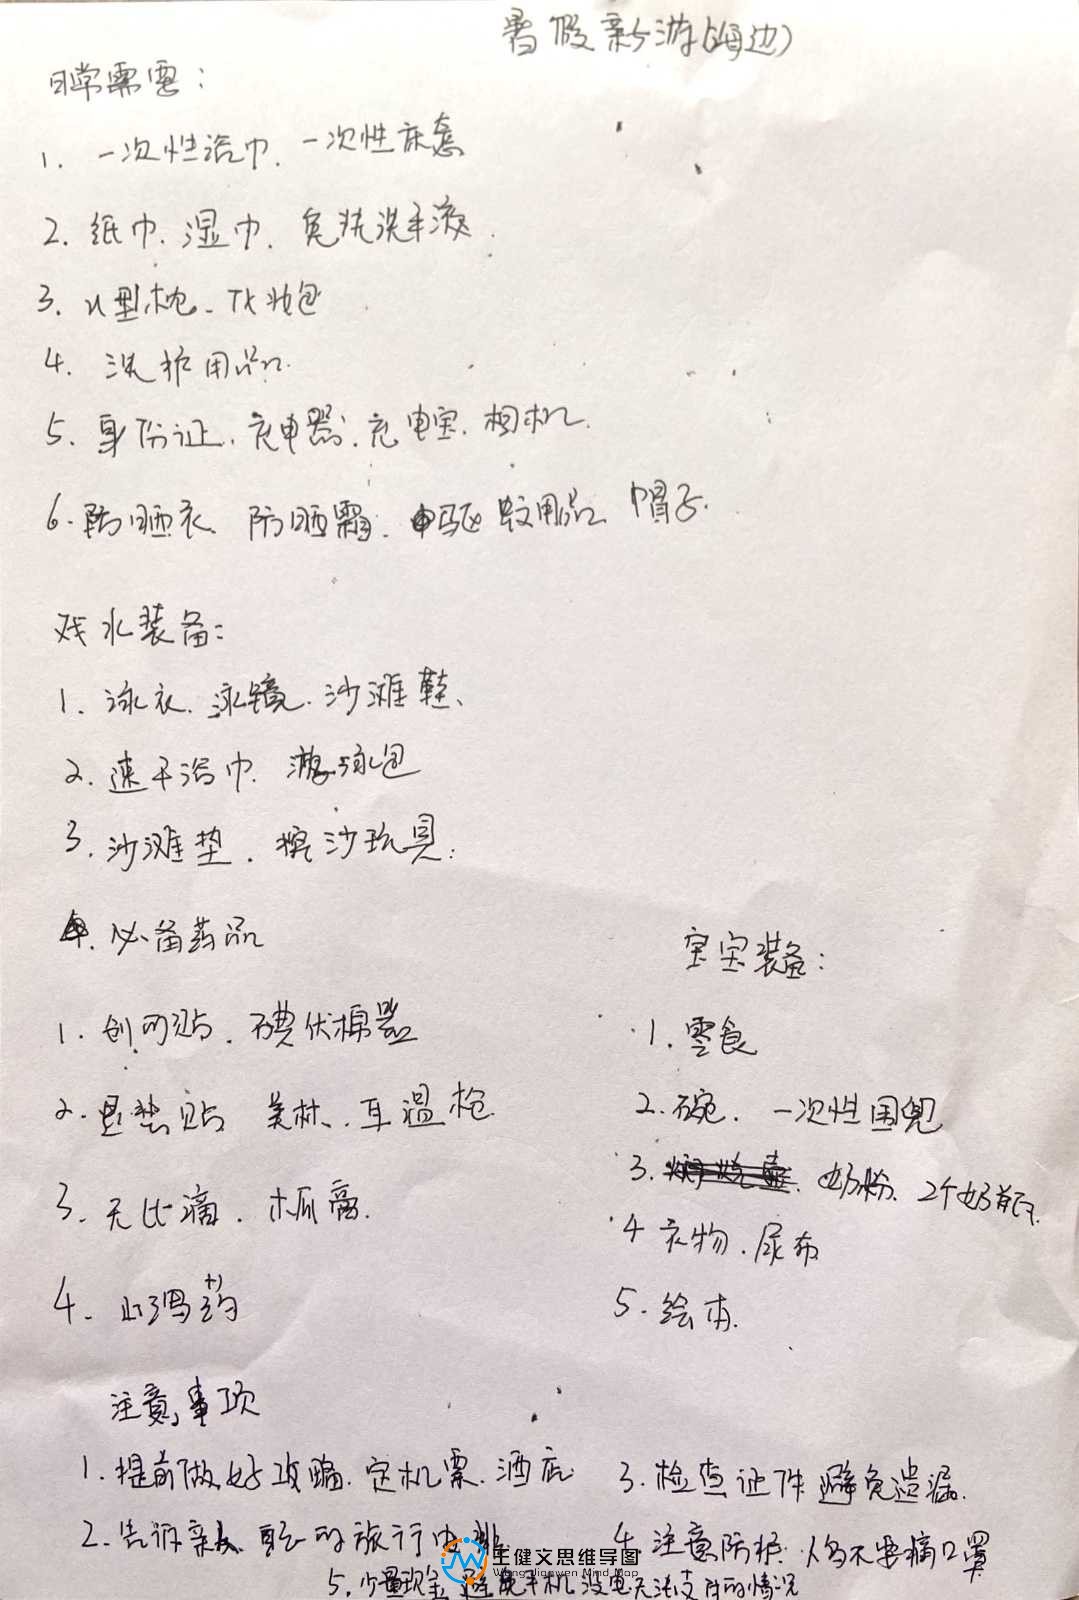 暑假新游(海边)
日常需要：
1. 一次性浴巾、一次性床套
2. 纸巾、湿巾、免洗洗手液.
3. U型枕、化妆包
4. 洗护用品.
5. 身份证、充电器、充电宝、相机.
6. 防晒衣 防晒霜、驱蚊用品、帽子.
戏水装备：
1. 泳衣、泳镜、沙滩鞋、
2. 速干浴巾、游泳包
3. 沙滩垫、挖沙玩具；
必备药品
1. 创可贴、碘伏棉器
2. 退热贴 美林、耳温枪
3. 无比滴、木瓜膏.
4. 止泻药
宝宝装备：
1. 零食
2. 碗、一次性围兜
3. 奶粉、2个奶瓶.
4 衣物、尿布
5. 绘本.
注意事项
1. 提前做好攻略、定机票、酒店
2. 告诉亲人 自己的旅行
3. 检查证件 避免遗漏.
4. 注意防护，人多不要摘口罩
5. 少量现金 避免手机没电无法支付的情况
王健文思维导图
Wang Jianwen Mind Map